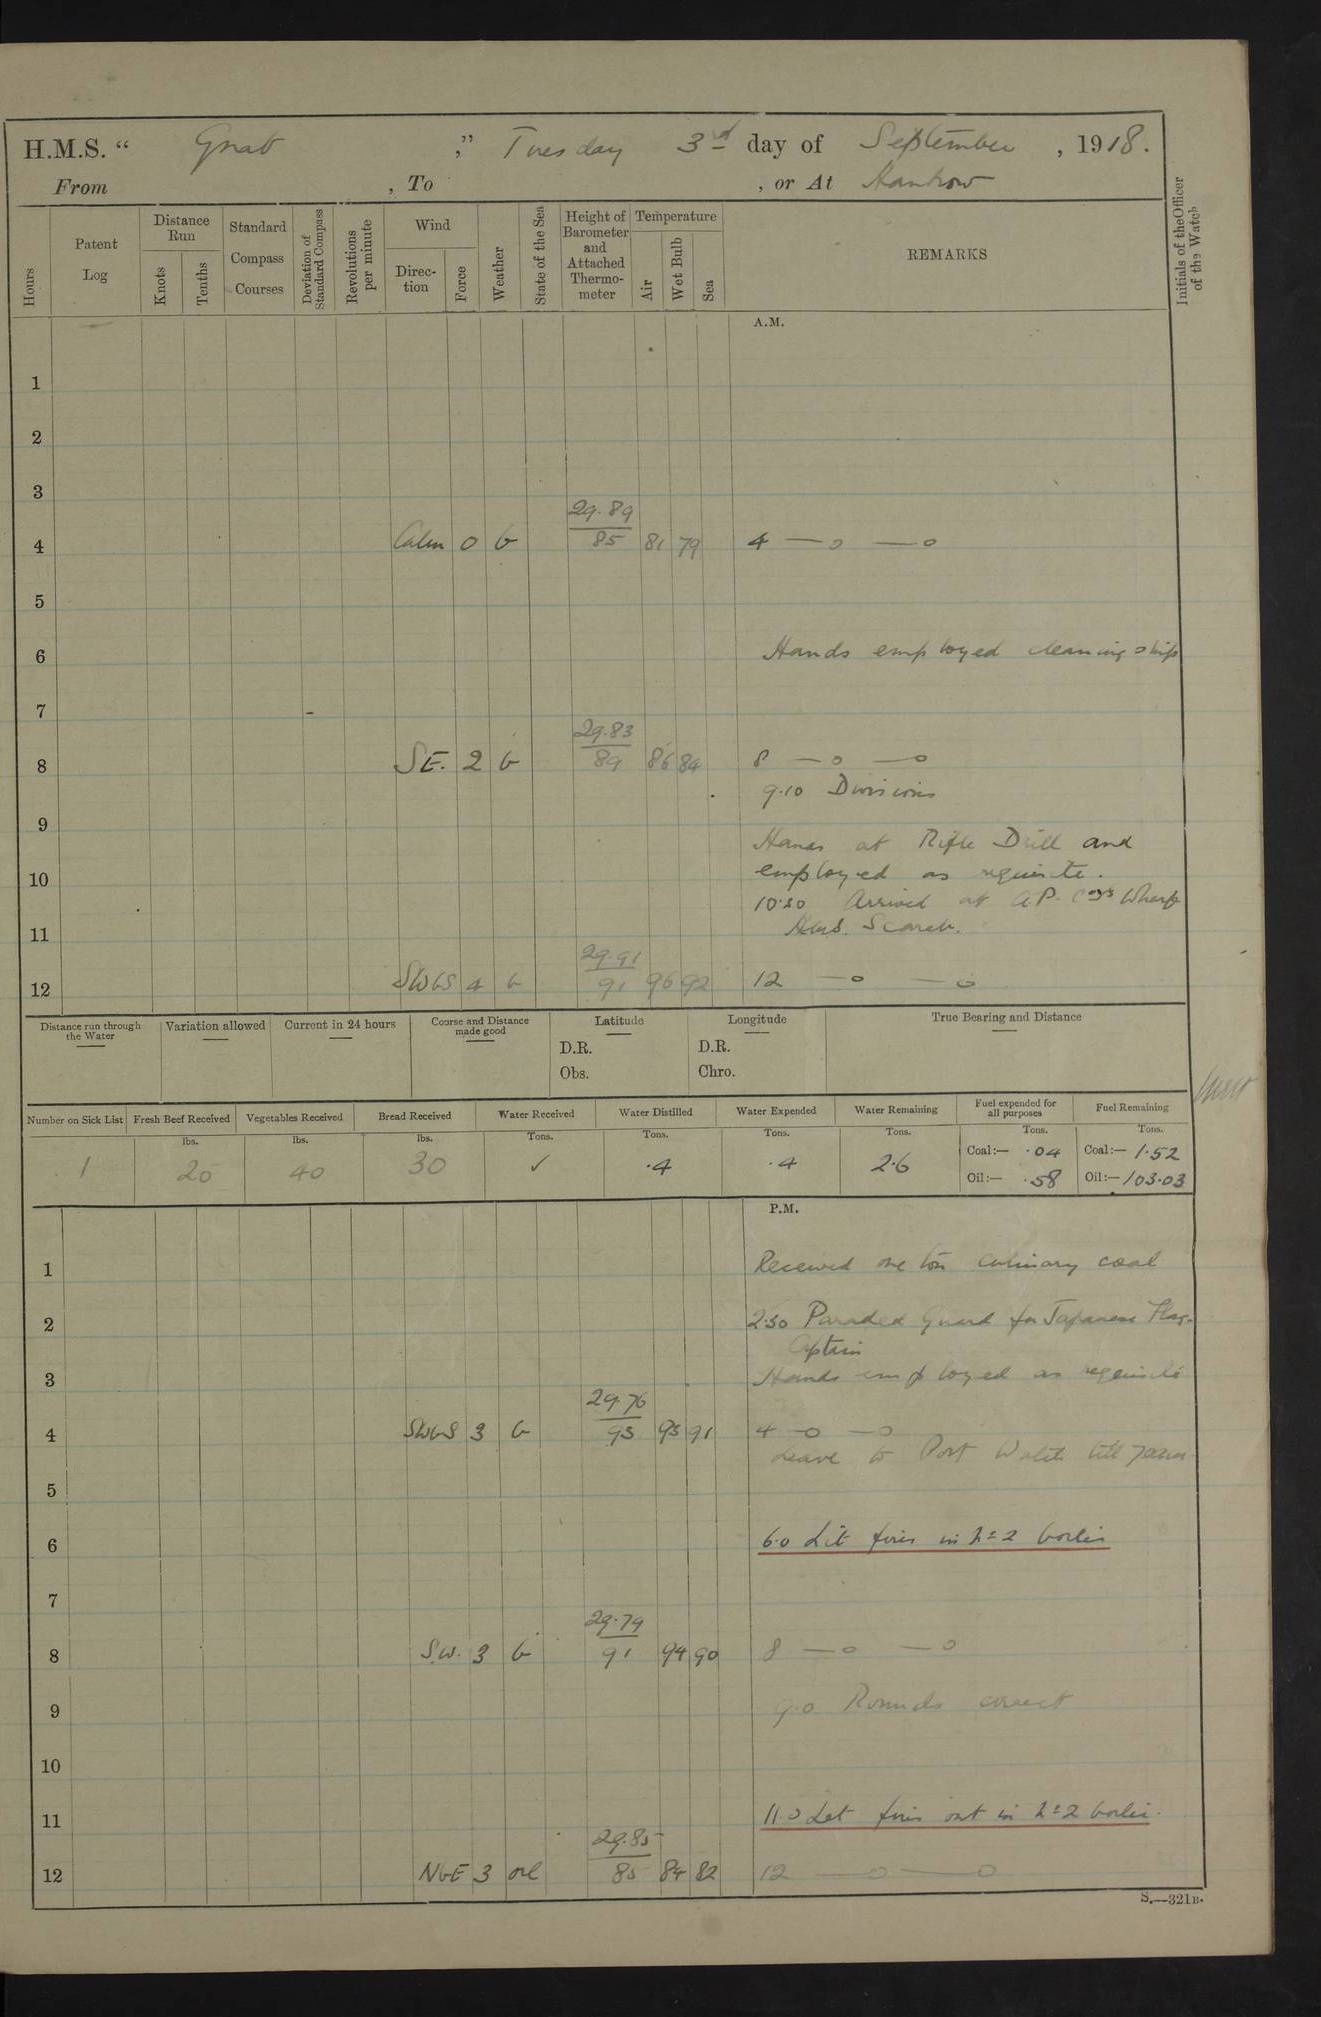 H.M.S. “ Gnat ,” Tuesday 3rd day of September , 1918.
From , To , or At Hankow
Hours
Patent Log
Distance Run
Knots
Tenths
Standard Compass Courses
Deviation of Standard Compass
Revolutions per minute
Wind
Direction
Force
Weather
State of the Sea
Height of Barometer and Attached Thermometer
Temperature
Air
Wet Bulb
Sea
REMARKS
Initials of the Officer of the Watch
A.M.
1
2
3
29.89
4 Calm 0 b 85 81 79 4 —o —o
5
6 Hands employed cleaning ship
7
29.83
8 SE. 2 b 89 86 84 8 —o —o
9.10 Divisions
9
Hands at Rifle Drill and
10 employed as requisite.
10.30 Arrived at A.P. Coys Wharf
11 H.M.S. Scarab.
29.91
12 SWbS 4 b 91 96 92 12 —o —o
Distance run through the Water
Variation allowed
Current in 24 hours
Course and Distance made good
Latitude
D.R.
Obs.
Longitude
D.R.
Chro.
True Bearing and Distance
Number on Sick List
Fresh Beef Received
Vegetables Received
Bread Received
Water Received
Water Distilled
Water Expended
Water Remaining
Fuel expended for all purposes
Fuel Remaining
lbs. lbs. lbs. Tons. Tons. Tons. Tons. Tons. Tons.
1 25 40 30 ✓ .4 .4 2.6
Coal:— .04 Coal:— 1.52
Oil:— .58 Oil:— 103.03
P.M.
1 Received one ton culinary coal
2 2.30 Paraded Guard for Japanese Flag-
Captain
3 Hands employed as requisite
29.76
4 SWbS 3 b 93 93 91 4 —o —o
Leave to Port Watch till 7am
5
6 6.0 Lit fires in No 2 boiler
7
29.79
8 S.W. 3 b 91 94 90 8 —o —o
9 9.0 Rounds correct
10
11 11.0 Let fires out in No 2 boiler.
29.85
12 NbE 3 orl 85 84 82 12 —o —o
S.—321B.